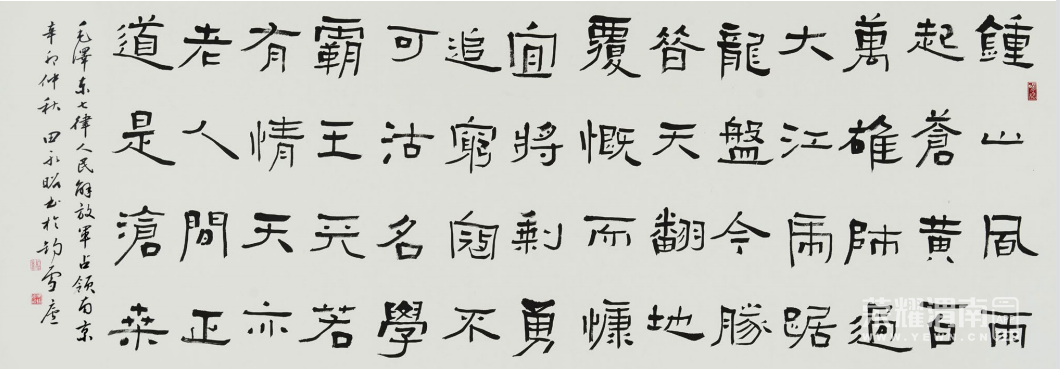 鍾山風雨
起蒼黃百
萬雄師過
大江虎踞
龍盤今勝
昔天翻地
覆慨而慷
宜將剩勇
追窮寇不
可沽名學
霸王天若
有情天亦
老人間正
道是滄桑
毛澤東七律人民解放軍占領南京
辛卯仲秋 田永昭书於釣雪廬
荣耀渭南
WWW.YEWN.CN